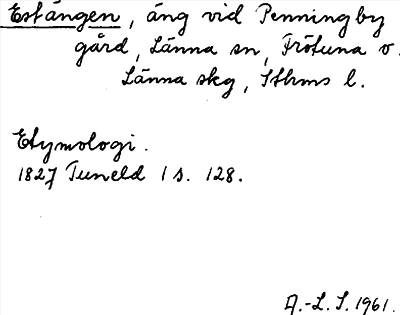 Estängen, äng vid Penningby
gård, Länna sn, Frötuna o.
Länna skg, Sthms l.
Etymologi.
1827 Tuneld 1 s. 128.
A.-L. S. 1961.